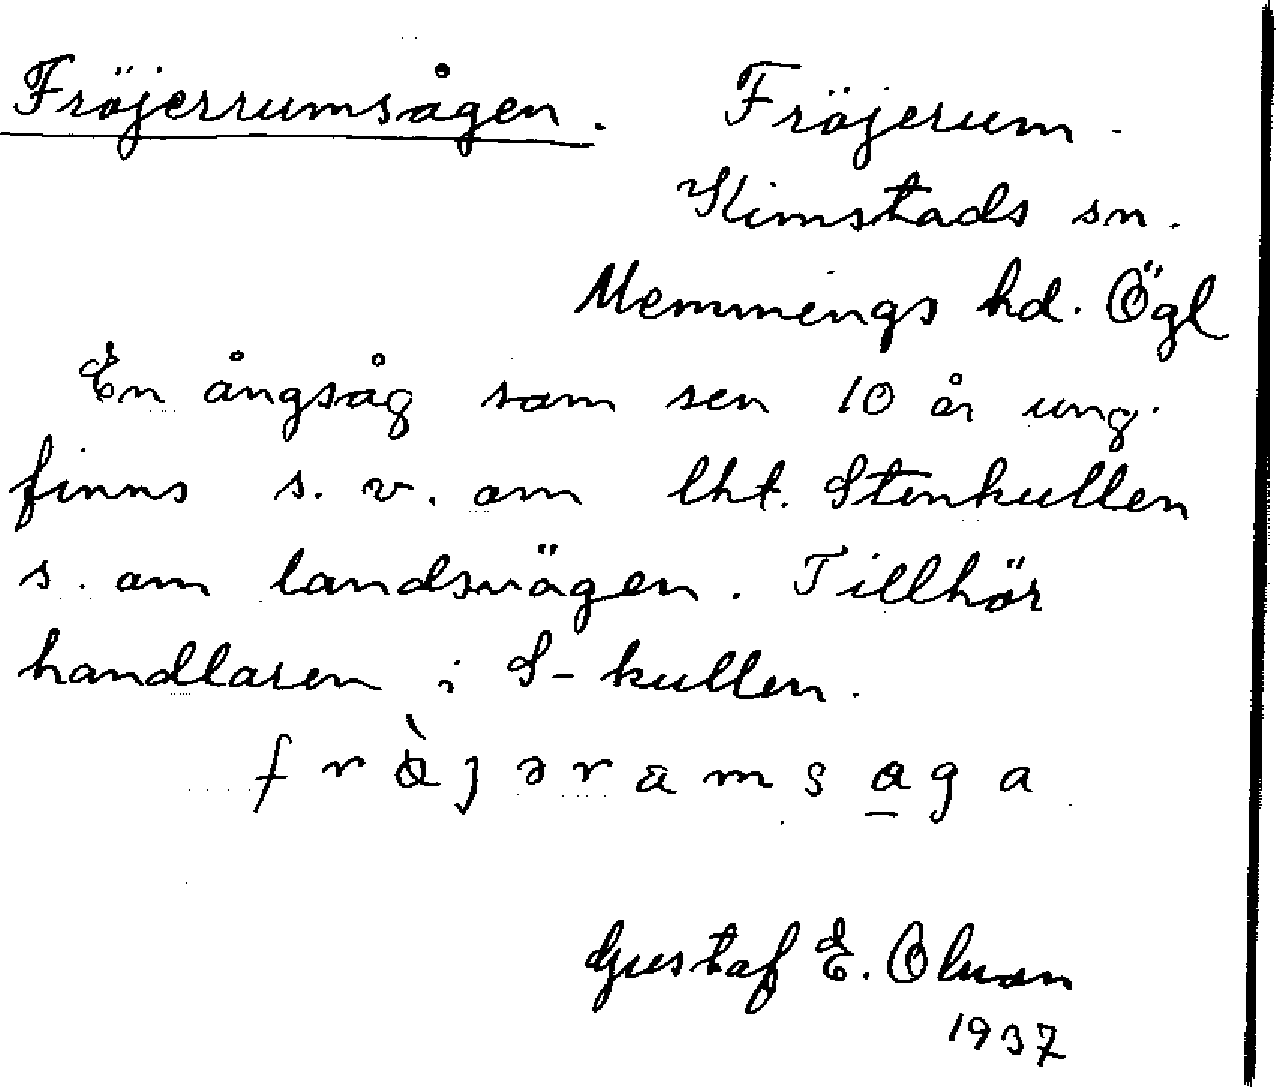 Fröjerrumsågen. Fröjerum.
Kimstads sn.
Memmings hd. Ögl
En ångsåg som sen 10 år ung.
finns s. v. om lht. Stenkullen
s. om landsvägen. Tillhör
handlaren i S-kullen.
Gustaf E. Olson
1937